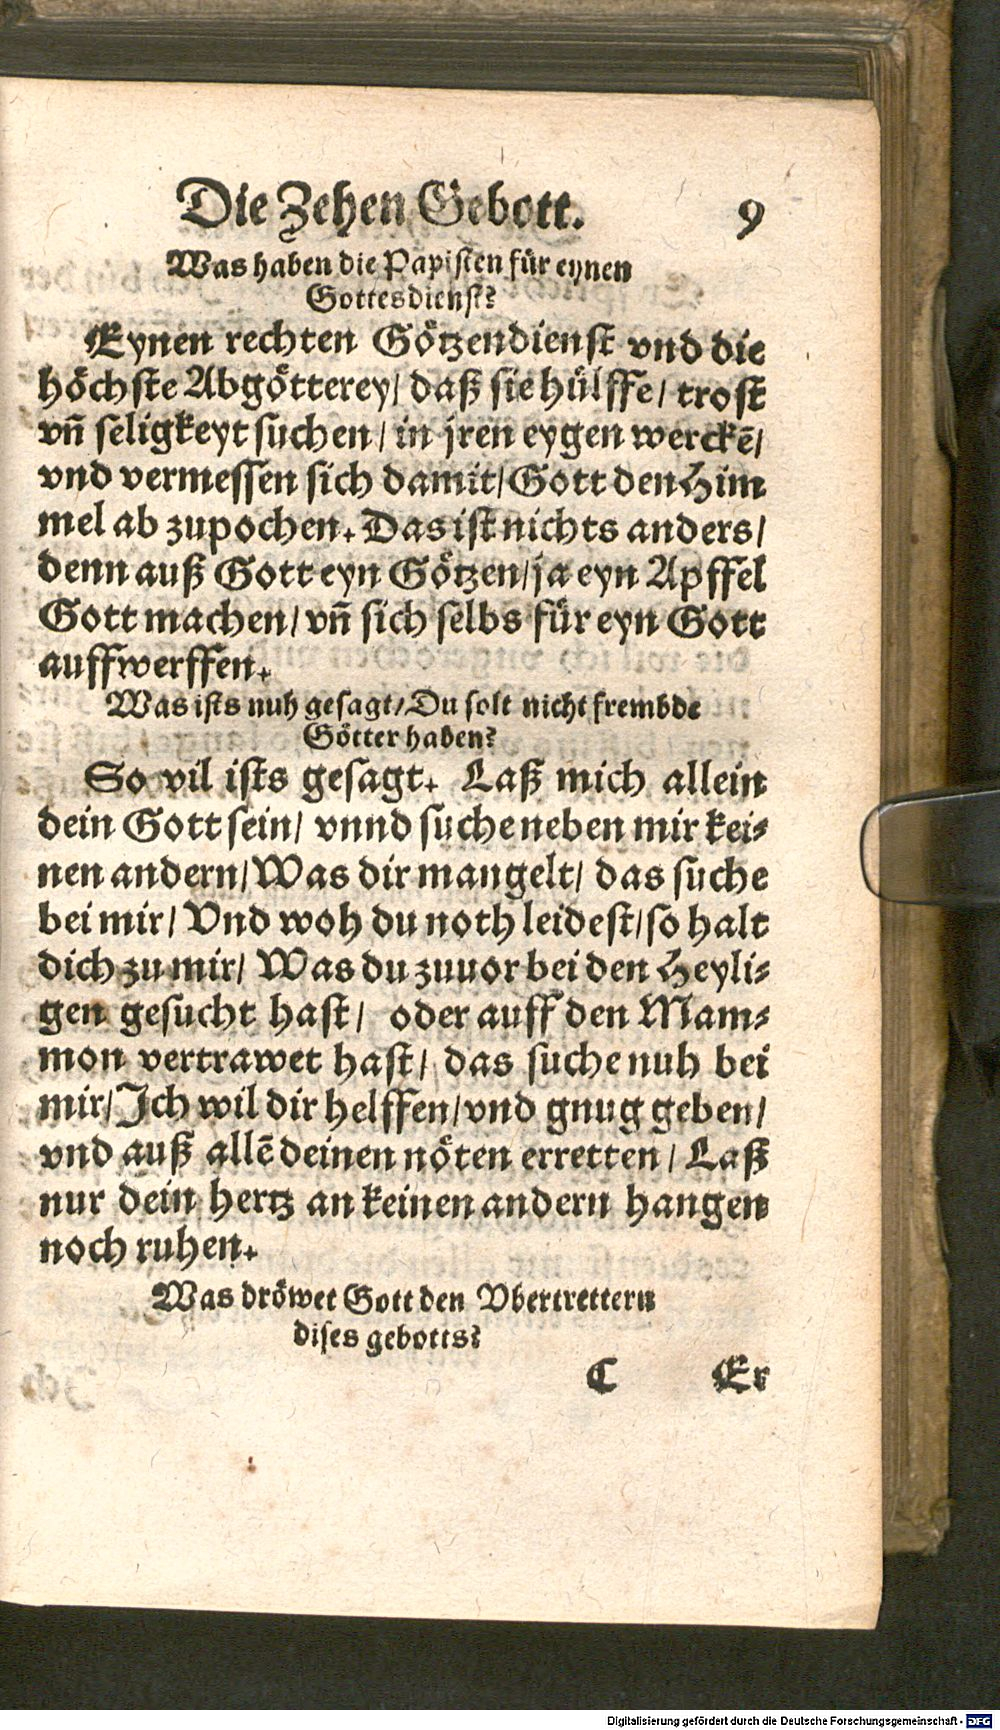 Die Zehen Gebott. 9
Was haben die Papisten für eynen
Gottesdienst?
Eynen rechten Götzendienst vnd die
höchste Abgötterey/ daß sie hülffe/ trost
vñ seligkeyt suchen/ in jren eygen werckē/
vnd vermessen sich damit/ Gott den Him
mel ab zupochen. Das ist nichts anders/
denn auß Gott eyn Götzen/ ja eyn Apffel
Gott machen/ vñ sich selbs für eyn Gott
auffwerffen.
Was ists nuh gesagt/ Du solt nicht frembde
Götter haben?
So vil ists gesagt. Laß mich allein
dein Gott sein/ vnnd suche neben mir kei-
nen andern/ Was dir mangelt/ das suche
bei mir/ Vnd woh du noth leidest/ so halt
dich zu mir/ Was du zuuor bei den Heyli-
gen gesucht hast/ oder auff den Mam-
mon vertrawet hast/ das suche nuh bei
mir/ Ich wil dir helffen/ vnd gnug geben/
vnd auß allē deinen nöten erretten/ Laß
nur dein hertz an keinen andern hangen
noch ruhen.
Was dröwet Gott den Vbertrettern
dises gebotts?
C Er
Digitalisierung gefördert durch die Deutsche Forschungsgemeinschaft - DFG